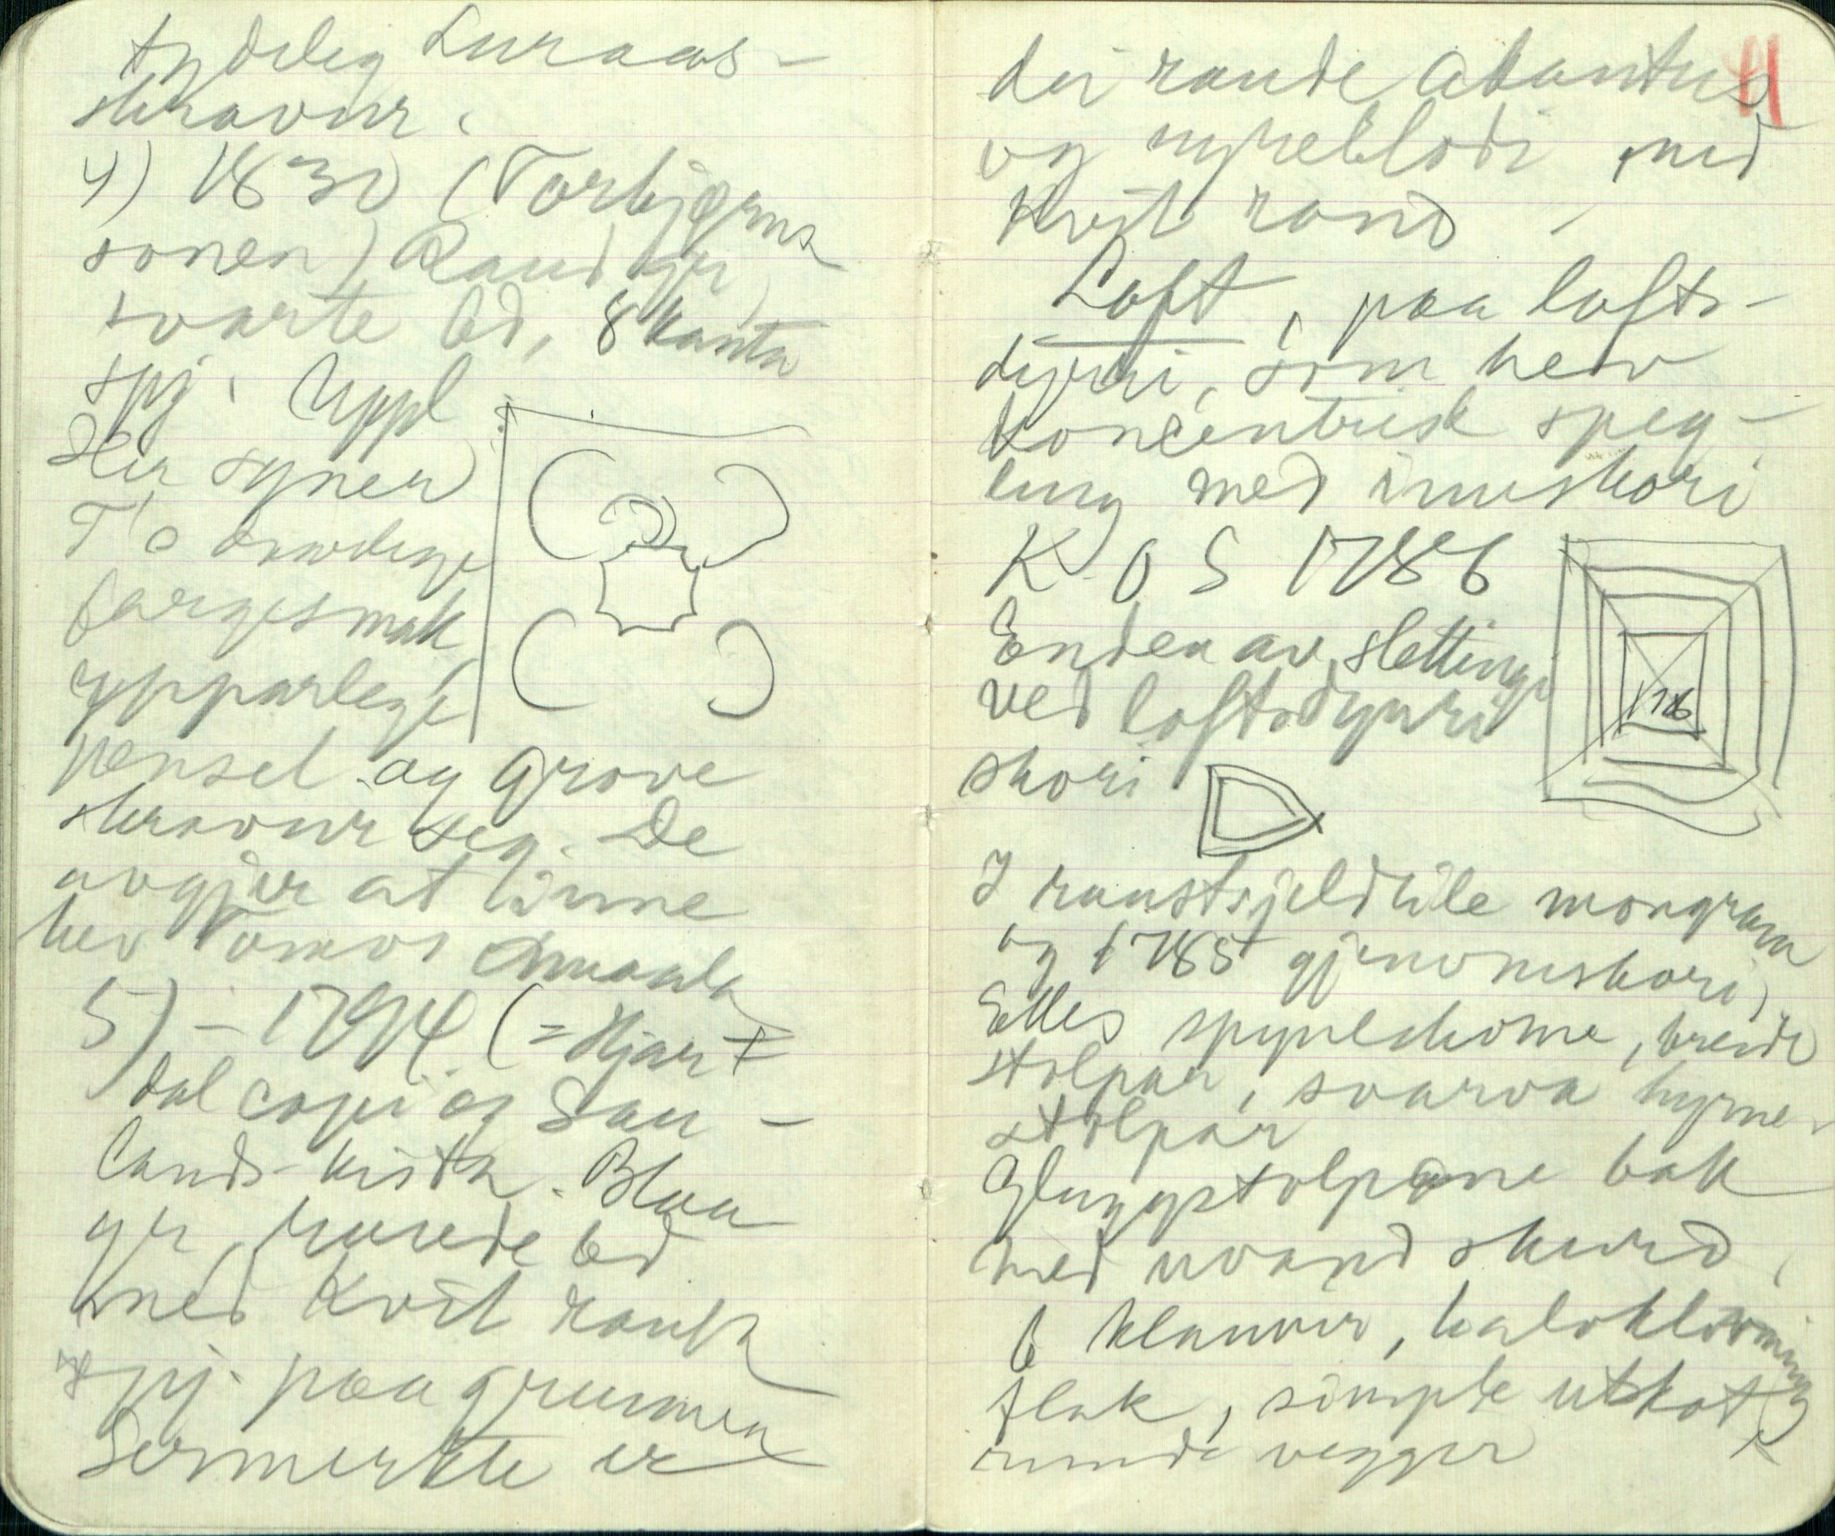 tydeleg Luraas-
skravur.
4) 1830 (Torbjørns
sonen) Raud gr,
svarte bd, 8 kanta
spj. Uppl
Her syner
T's
fargesmak
ypparlege
pensel og grove
skravur seg. De
avgjer at inne
hev Tomos maala
5) – 1794 (= Hjart
dal copi og Sau-
lands-kista. Blaa
gr, raude bd
med kvit rank
spj. paa grunnen
Sermerkte er
dei raude akantus
og nyreblodi med
kvit rand
Loft, paa lofts-
dyrri, som hev
koncentrisk speg-
ling med innskori
K O S 1786
Enden av slettingi
ved loftsdyrri
skori
1786
I raustsjeldhile mongram
og 1785 gjenomskori,
Elles spynelskorne, breide
stolpar, svarva hyrne-
stolpar
Gluggstolpane bak
med uvand skurd,
6 klauvir, halvklovning
flak, simple utskot
runde vegger